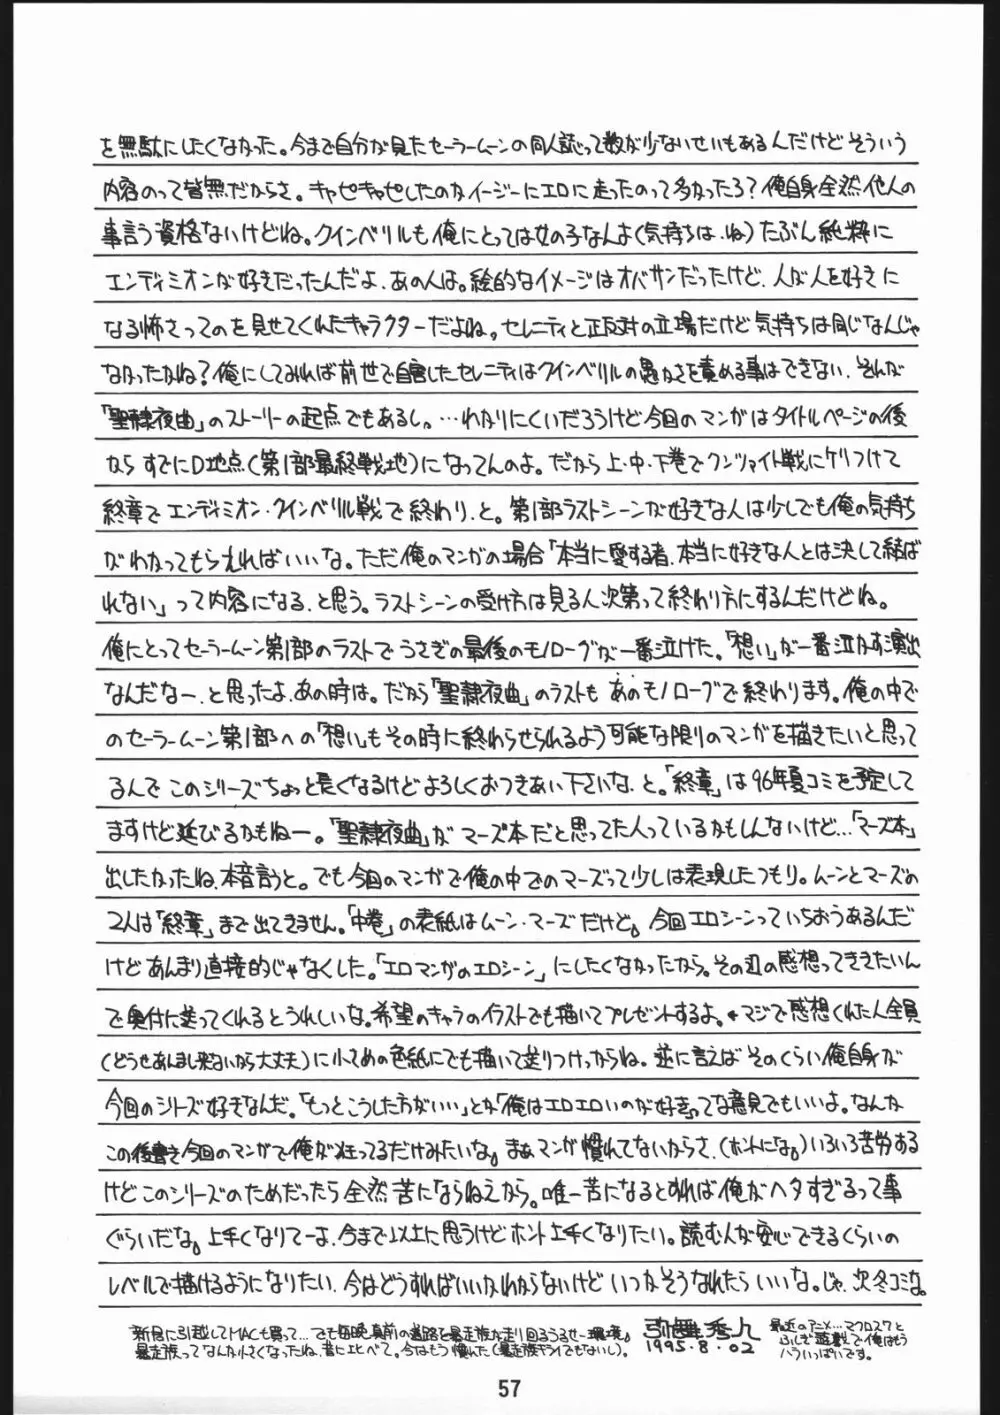 を無駄にしたくなかった。今まで自分が見たセーラームーンの同人誌って数が少ないせいもあるんだけどそういう
内容のって皆無だからさ。キャピキャピしたのがイージーにエロに走ったのって多かったろ?俺自身全然他人の
事言う資格ないけどね。クインベリルも俺にとっては女の子なんよ(気持ちは、ね)たぶん純粋に
エンディミオンが好きだったんだよ、あの人は。絵的なイメージはオバサンだったけど、人が人を好きに
なる怖さってのを見せてくれたキャラクターだよね。セレニティと正反対の立場だけど気持ちは同じなんじゃ
なかったかね?俺にしてみれば前世で自害したセレニティはクインベリルの愚かさを責める事はできない、それが
「聖隷夜曲」のストーリーの起点でもあるし。…わかりにくいだろうけど今回のマンガはタイトルページの後
ならすでにD地点(第1部最終戦地)になってんのよ。だから上・中・下巻でクンツァイト戦にケリつけて
終章でエンディミオン・クインベリル戦で終わり、と。第1部ラストシーンが好きな人は少しでも俺の気持ち
がわかってもらえればいいな。ただ俺のマンガの場合「本当に愛する者、本当に好きな人とは決して結ば
れない」って内容になる、と思う。ラストシーンの受け方は見る人次第って終わり方にするんだけどね。
俺にとってセーラームーン第1部のラストでうさぎの最後のモノローグが一番泣けた。「想い」が一番泣かす演出
なんだなー、と思ったよ、あの時は。だから「聖隷夜曲」のラストもあのモノローグで終わります。俺の中で
のセーラームーン第1部への「想い」もその時に終わらせられるよう可能な限りのマンガを描きたいと思って
るんでこのシリーズちょっと長くなるけどよろしくおつきあい下さいな、と。「終章」は96年夏コミを予定して
ますけど延びるかもねー。「聖隷夜曲」がマーズ本だと思ってた人っているかもしんないけど…「マーズ本」
出したかったね、本音言うと。でも今回のマンガで俺の中でのマーズって少しは表現したつもり。ムーンとマーズの
2人は「終章」まで出てきません。「中巻」の表紙はムーン・マーズだけど。今回エロシーンっていちおうあるんだ
けどあんまり直接的じゃなくした。「エロマンガのエロシーン」にしたくなかったから。その辺の感想ってききたいん
で奥付に送ってくれるとうれしいな。希望のキャラのイラストでも描いてプレゼントするよ。←マジで感想くれた人全員
(どうせあんまし来ないから大丈夫)に小さめの色紙にでも描いて送りつけっからね。逆に言えばそのくらい俺自身が
今回のシリーズ好きなんだ。「もっとこうした方がいい」とか「俺はエロエロいのが好き」ってな意見でもいいよ。なんか
この後書き今回のマンガで俺が狂ってるだけみたいな。まぁマンガ慣れてないからさ、(ホントにな。)いろいろ苦労する
けどこのシリーズのためだったら全然苦にならねえから。唯一苦になるとすれば俺がヘタすぎるって事
ぐらいだな。上手くなりてーよ、今まで以上に思うけどホント上手くなりたい。読む人が安心できるくらいの
レベルで描けるようになりたい、今はどうすればいいかわからないけどいつかそうなれたらいいな。じゃ、次冬コミな。
新居に引越してMACも買って…でも毎晩真前の道路を暴走族が走り回るうるせー環境。
暴走族ってなんか小さくなったね、昔に比べて。今はもう慣れた(暴走族キライでもないし)。
1995.8.02
最近のアニメ…マクロス7と
ふしぎ遊戯で俺はもう
ハラいっぱいです。
57